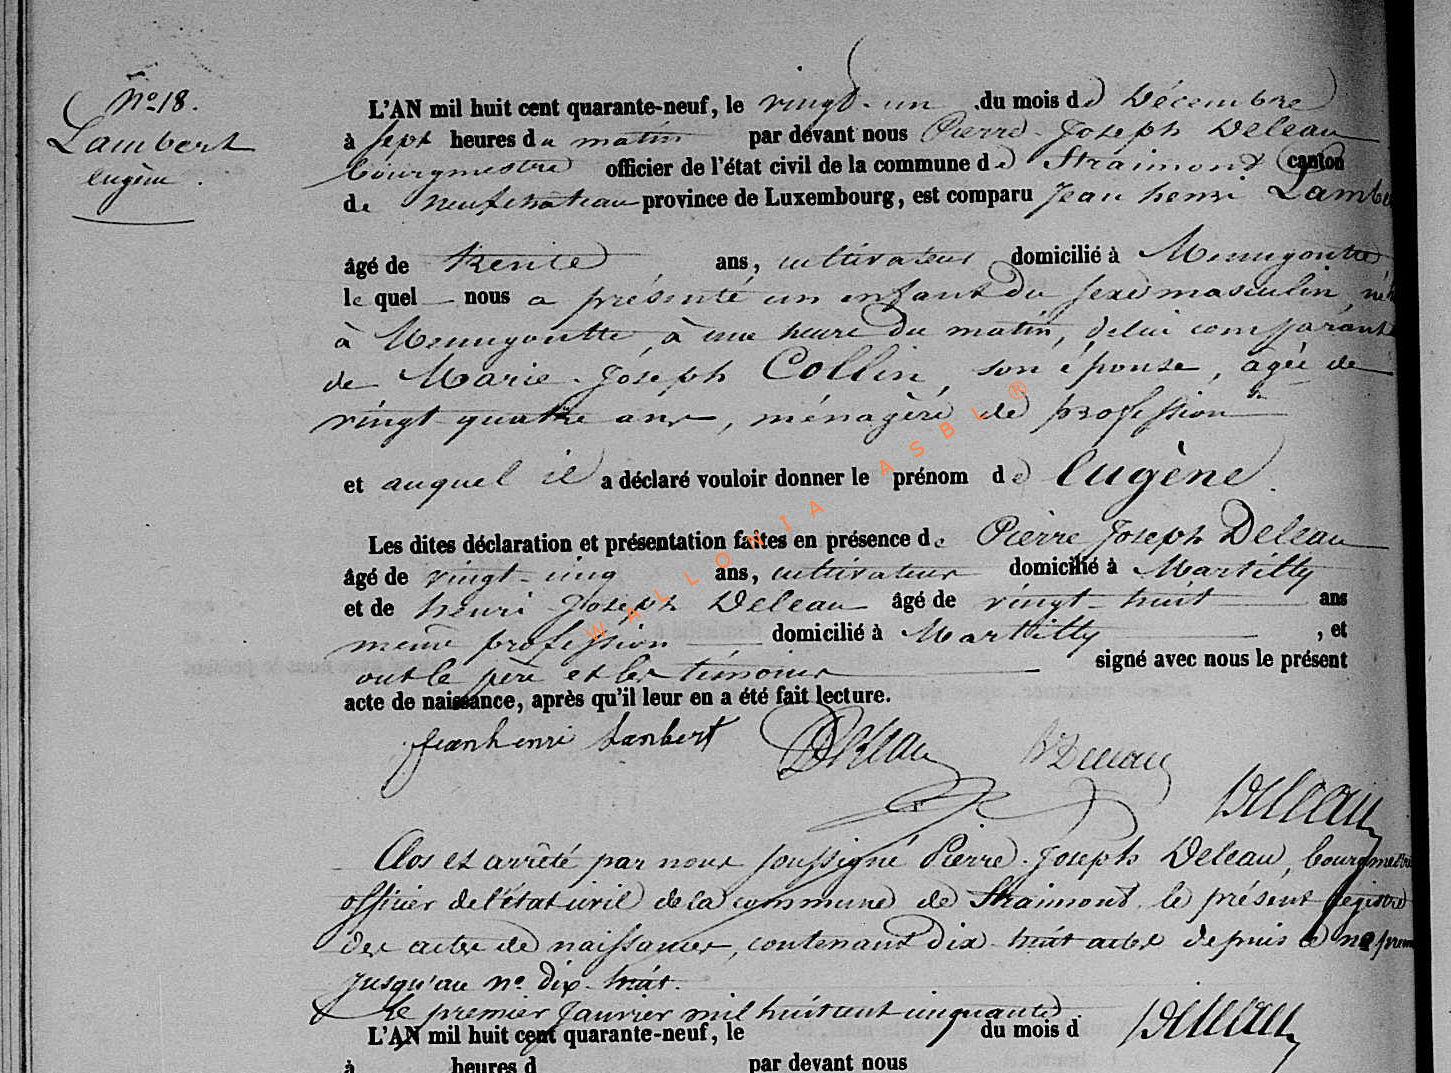 N° 18.
Lambert
Eugène.
L'AN mil huit cent quarante-neuf, le vingt-un du mois de Décembre
à sept heures du matin par devant nous Pierre-Joseph Deleau
bourgmestre officier de l'état civil de la commune de Straimont canton
de neufchateau province de Luxembourg, est comparu Jean henri Lambe
âgé de trente ans, cultivateur domicilié à Menugoutte
lequel nous a présenté un enfant du sexe masculin, né
à Menugoutte, à une heure du matin, de lui comparant
de Marie-Joseph Collin, son épouse, agée de
vingt-quatre ans, ménagère de profession
et auquel il a déclaré vouloir donner le prénom de Eugène.
Les dites déclaration et présentation faites en présence de Pierre Joseph Deleau
âgé de vingt-cinq ans, cultivateur domicilié à Martilly
et de henri Joseph Deleau âgé de vingt-huit ans
meme profession domicilié à Martilly, et
ont le père et les témoins signé avec nous le présent
acte de naissance, après qu'il leur en a été fait lecture.
jean henri Lanbert Deleau Deleau
Deleau
Clos et arrêté par nous soussigné Pierre-Joseph Deleau, bourgmestre
officier de l'état civil de la commune de Straimont le présent registre
des actes de naissances, contenant dix-huit actes depuis le n° prem
jusqu'au n° dix-huit.
le premier Janvier mil huit cent cinquante.
L'AN mil huit cent quarante-neuf, le du mois d Deleau
à heures d par devant nous
WALLONIA ASBL ®